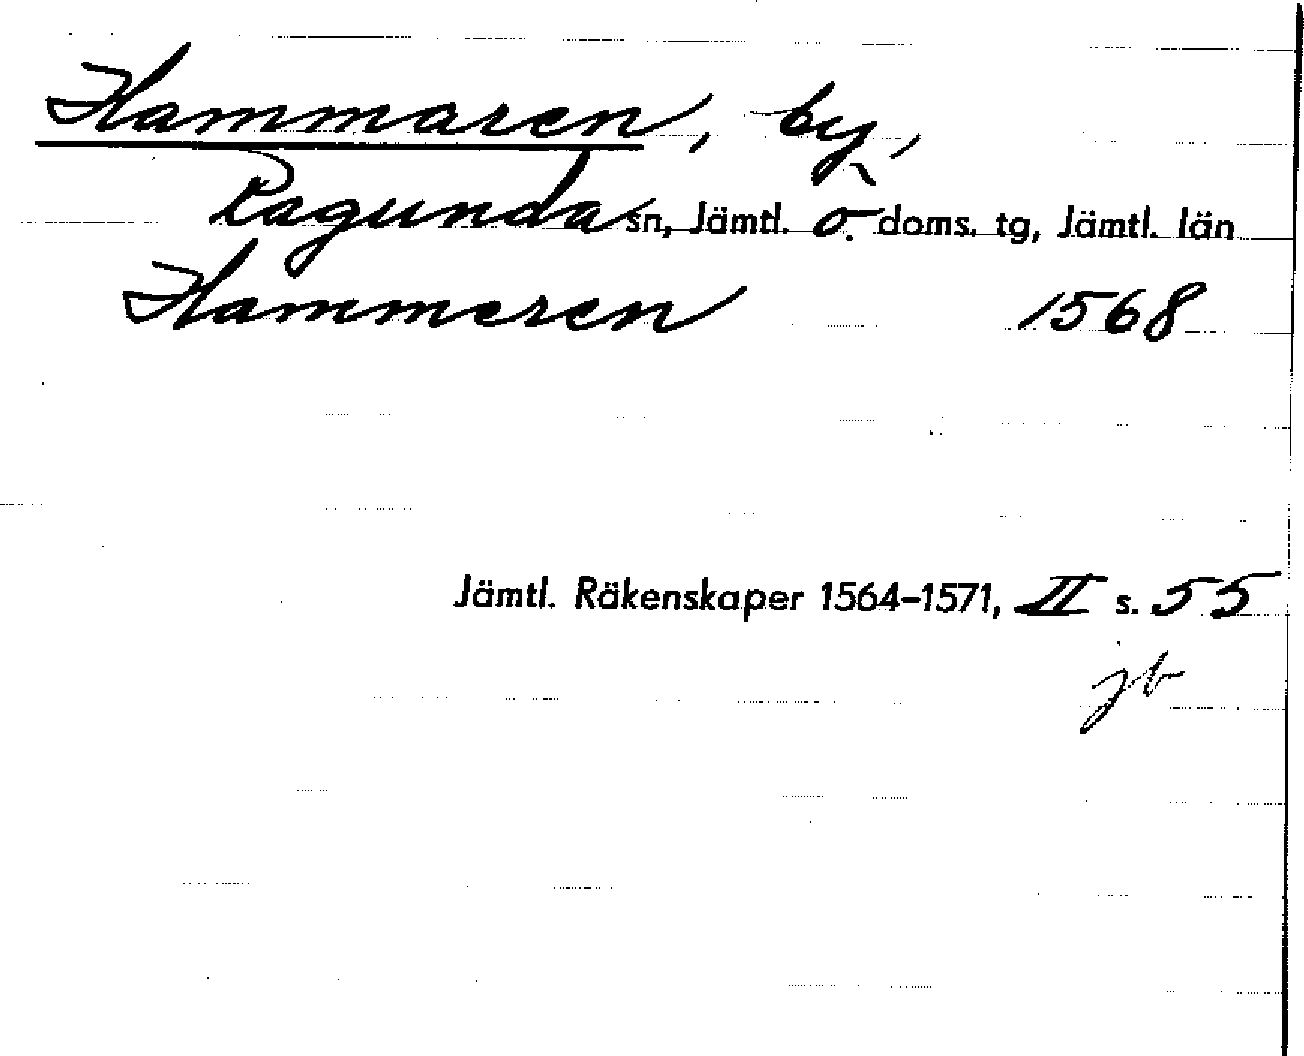 Hammaren, by,
Ragunda sn, Jämtl. ö. doms. tg, Jämtl. län
Hammeren 1568
Jämtl. Räkenskaper 1564-1571, II s. 55
jb